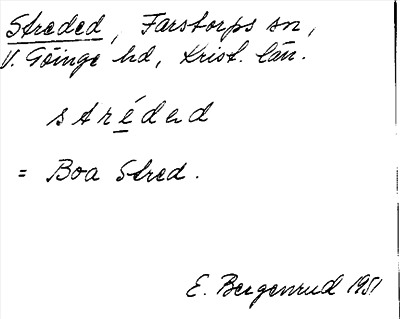 Streded, Farstorps sn,
V. Göinge hd, Krist. län.
strédед
= Boa Stred.
E. Bergenrud 1951